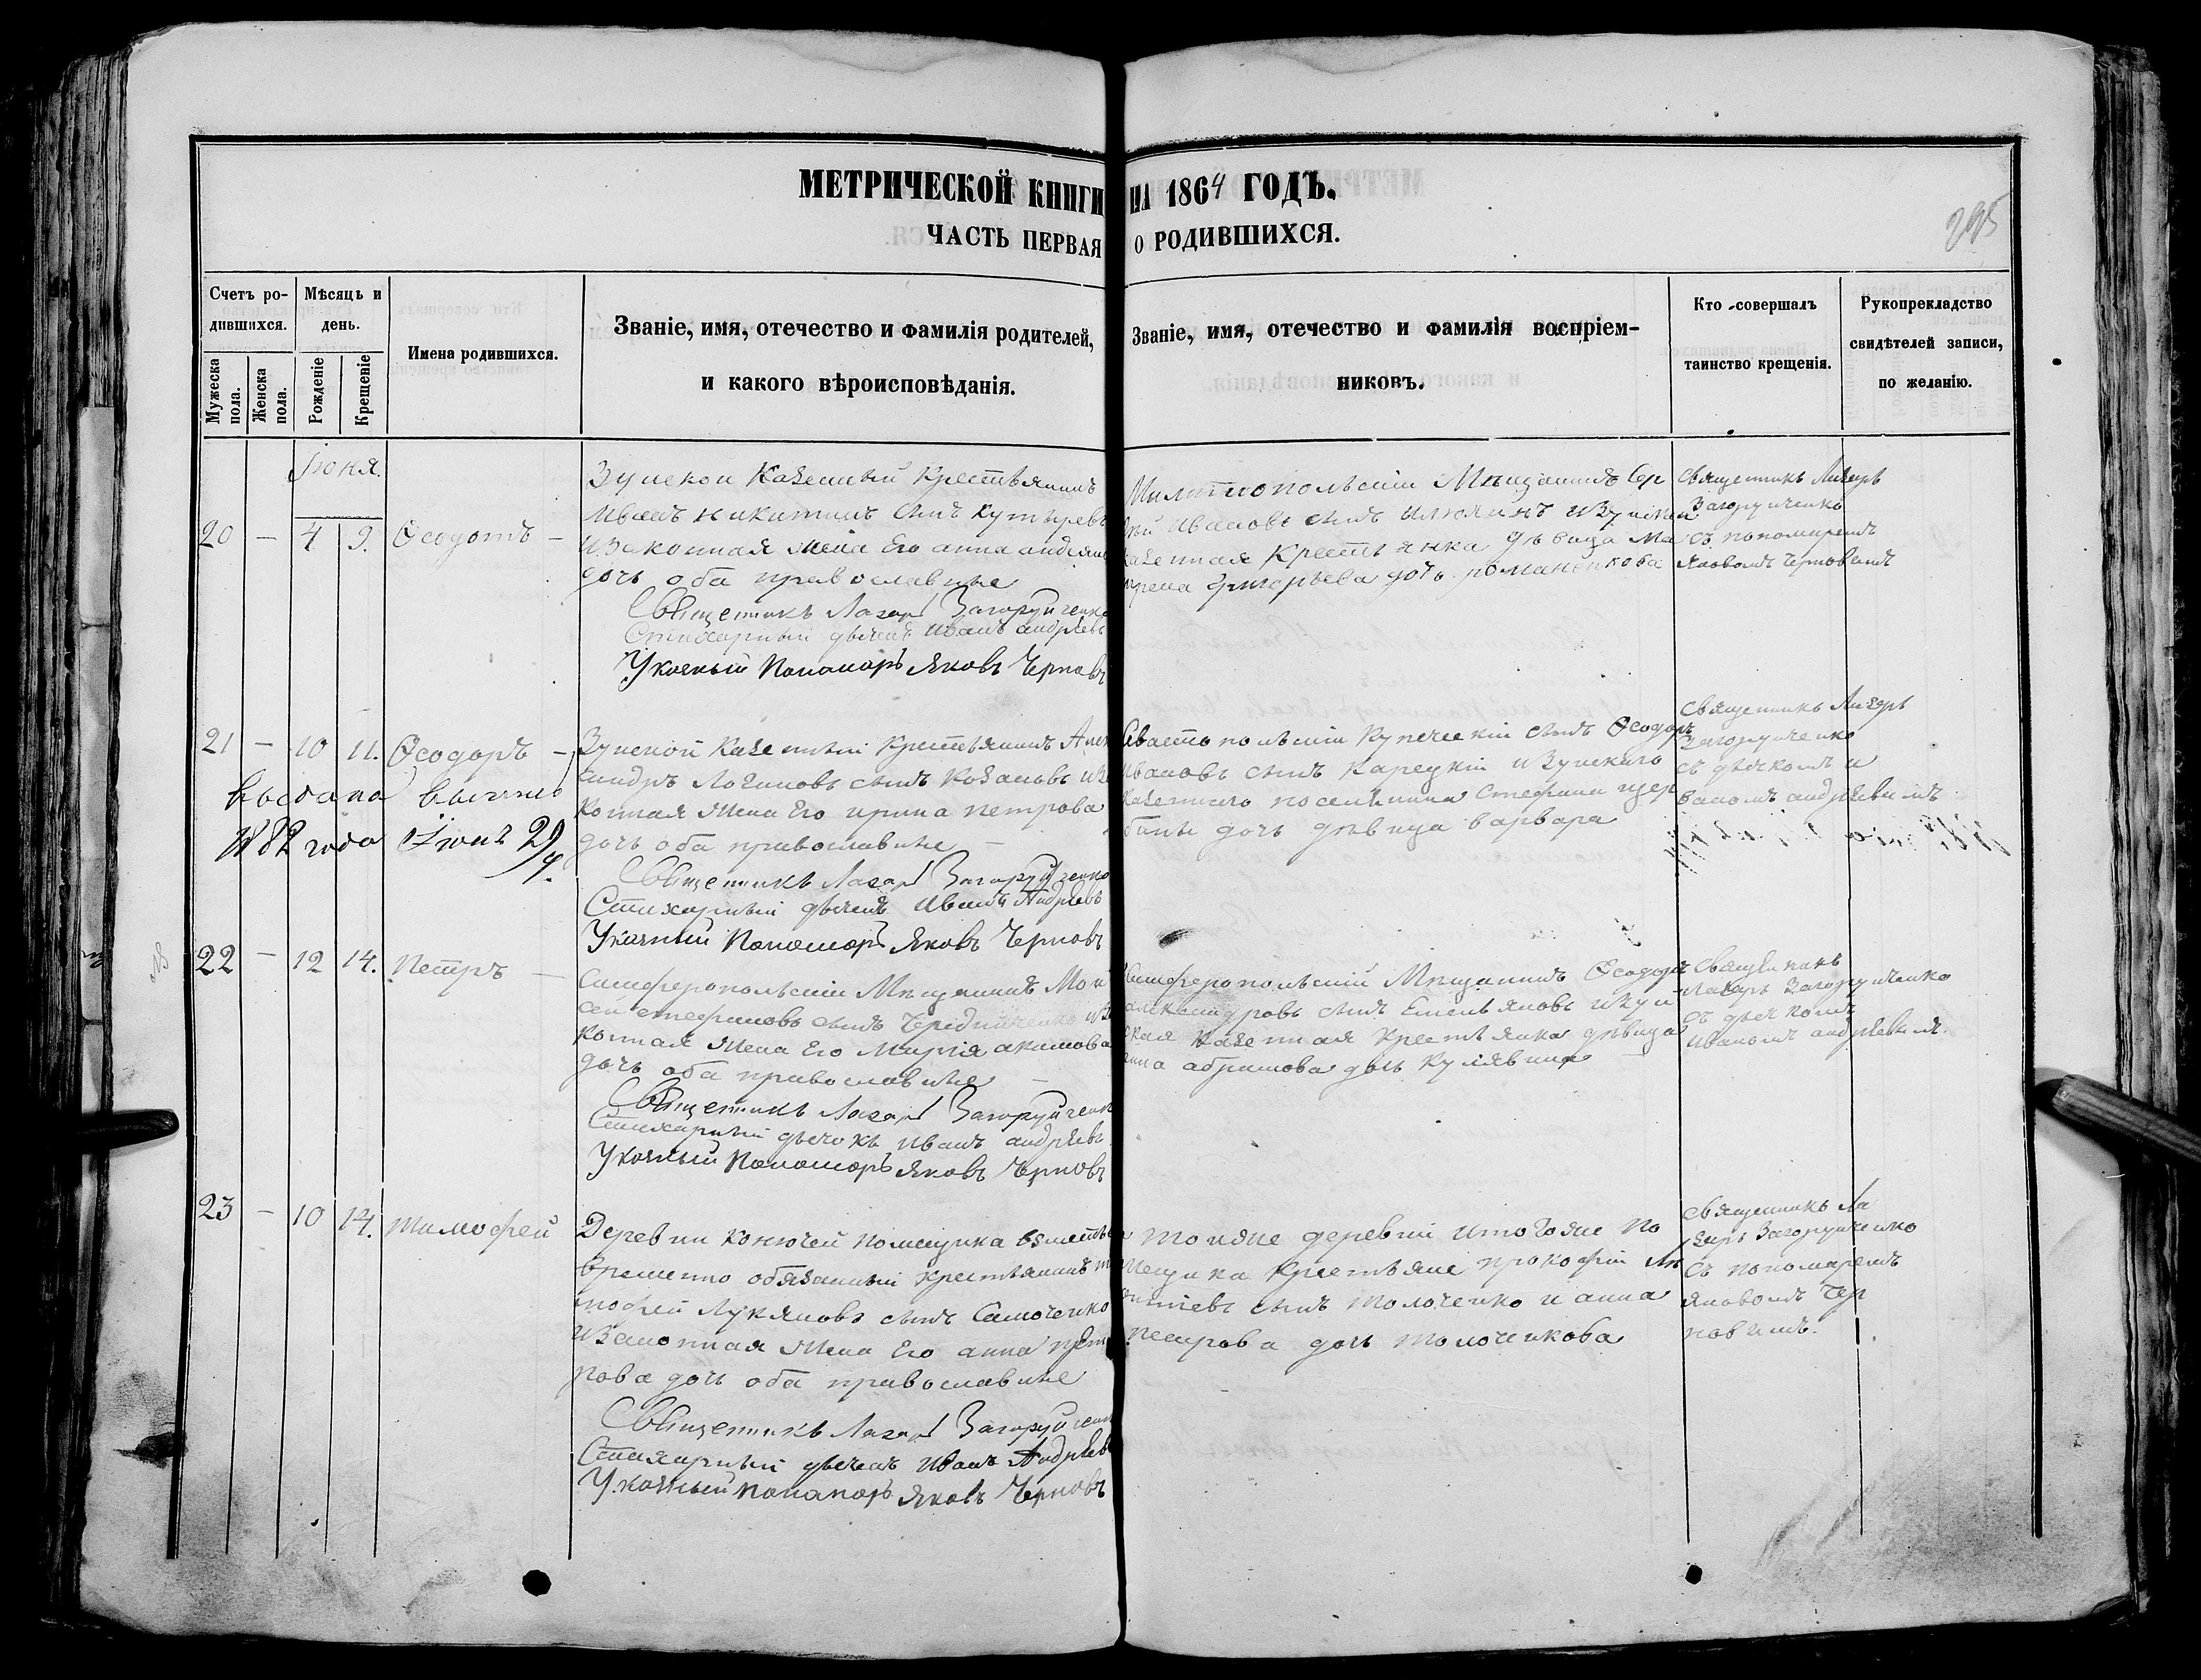 МЕТРИЧЕСКОЙ КНИГИ НА 1864 ГОДЪ.
ЧАСТЬ ПЕРВАЯ О РОДИВШИХСЯ.
295
Счетъ ро-
дившихся.
Мужеска пола.
Женска пола.
Мѣсяцъ и
день.
Рожденіе
Крещеніе
Имена родившихся.
Званіе, имя, отечество и фамилія родителей,
и какого вѣроисповѣданія.
Званіе, имя, отечество и фамилія воспріем-
никовъ.
Кто совершалъ
таинство крещенія.
Рукоприкладство
свидѣтелей записи,
по желанію.
Іюня.
20 — 4 9. Ѳеодотъ —
Зуйской Казенный Крестьянинъ
Иванъ Никитинъ сынъ
Изаконная Жена Его анна
дочь оба православные
Священникъ Лазарь Загоруйченко
Стихарный дьячекъ Иванъ андрѣевъ
Указный Пономарь Яковъ Черновъ
Мѣщанинъ Сер
гѣй Ивановъ сынъ Илюхинъ изуйская
казенная Крестьянка дѣвица Ма
Григорьева дочь романенкова
Священникъ Лазарь
Загоруйченко
съ пономаремъ
Яковомъ Черновымъ
21 — 10 11. Ѳеодоръ —
выдана выпись
1882 года Іюнь 29/
Зуйской Казенный Крестьянинъ Алек
сандръ Логиновъ сынъ Козаковъ иза
конная Жена Его ирина петрова
дочь оба православные —
Священникъ Лазарь Загоруйченко
Стихарный дьячекъ Иванъ Андрѣевъ
Указный Пономарь Яковъ Черновъ
Севастопольскій Купеческій сынъ Ѳеодоръ
Ивановъ сынъ Карецкій изуйскаго
казеннаго поселянина Стефана щер
бины дочь дѣвица варвара
Священникъ Лазарь
Загоруйченко
съ дьячкомъ и
ваномъ андрѣевымъ
22 — 12 14. Петръ —
Симферопольскій Мѣщанинъ Мои
сей стефановъ сынъ иза
конная Жена Его Марія акимова
дочь оба православные —
Священникъ Лазарь Загоруйченко
Стихарный дьячокъ Иванъ андрѣевъ
Указный Пономарь Яковъ Черновъ
Симферопольскій Мѣщанинъ Ѳеодоръ
александровъ сынъ Емельяновъ изуй
ская казенная Крестьянка дѣвица
анна абрамова дочь
Священникъ
Лазарь Загоруйченко
съ дьячкомъ
Иваномъ андрѣевымъ
23 — 10 14. тимофей
Деревни помещика
временно обязанный крестьянинъ ти
мофей Лукяновъ сынъ Самоченко
Изаконная Жена Его анна пет
рова дочь оба православные
Священникъ Лазарь Загоруйченко
Стихарный дьячекъ Иванъ Андрѣевъ
Указный пономарь Яковъ Черновъ
тойже деревни итогоже По
мещика Крестьяне прокофій
сынъ Толоченко и анна
петрова дочь толоченкова
Священникъ Ла
зарь Загоруйченко
съ пономаремъ
Яковомъ Чер
новымъ.